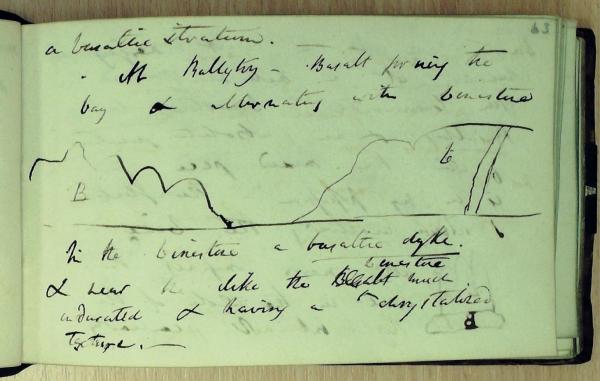 63
a basaltic stratum.
At Ballytoy - Basalt forming the
bay & alternating with limestone
B
In the limestone a basaltic dyke.
limestone
& near the dike the Basalt much
indurated & having a chrystalized
texture. —
B